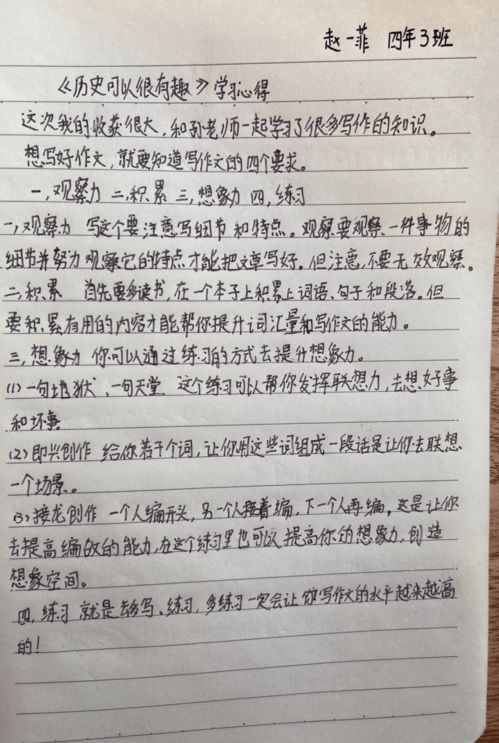 赵一菲 四年3班
《历史可以很有趣》学习心得
这次我的收获很大,和孙老师一起学习了很多写作的知识。
想写好作文,就要知道写作文的四个要求。
一,观察力 二,积累 三,想象力 四,练习
一,观察力 写这个要注意写细节和特点。观察要观察一件事物的
细节并努力观察它的特点才能把文章写好。但注意,不要无效观察。
二,积累 首先要多读书,在一个本子上积累上词语、句子和段落。但
要积累有用的内容才能帮你提升词汇量和写作文的能力。
三,想象力 你可以通过练习的方式去提升想象力。
(1)一句地狱、一句天堂 这个练习可以帮你发挥联想力,去想好事
和坏事
(2)即兴创作 给你若干个词,让你用这些词组成一段话是让你去联想
一个场景。
(3)接龙创作 一个人编开头,另一个人接着编,下一个人再编。这是让你
去提高编故的能力,在这个练习里也可以提高你的想象力,创造
想象空间。
四,练习 就是去多写、练习,多练习一定会让你写作文的水平越来越高
的!